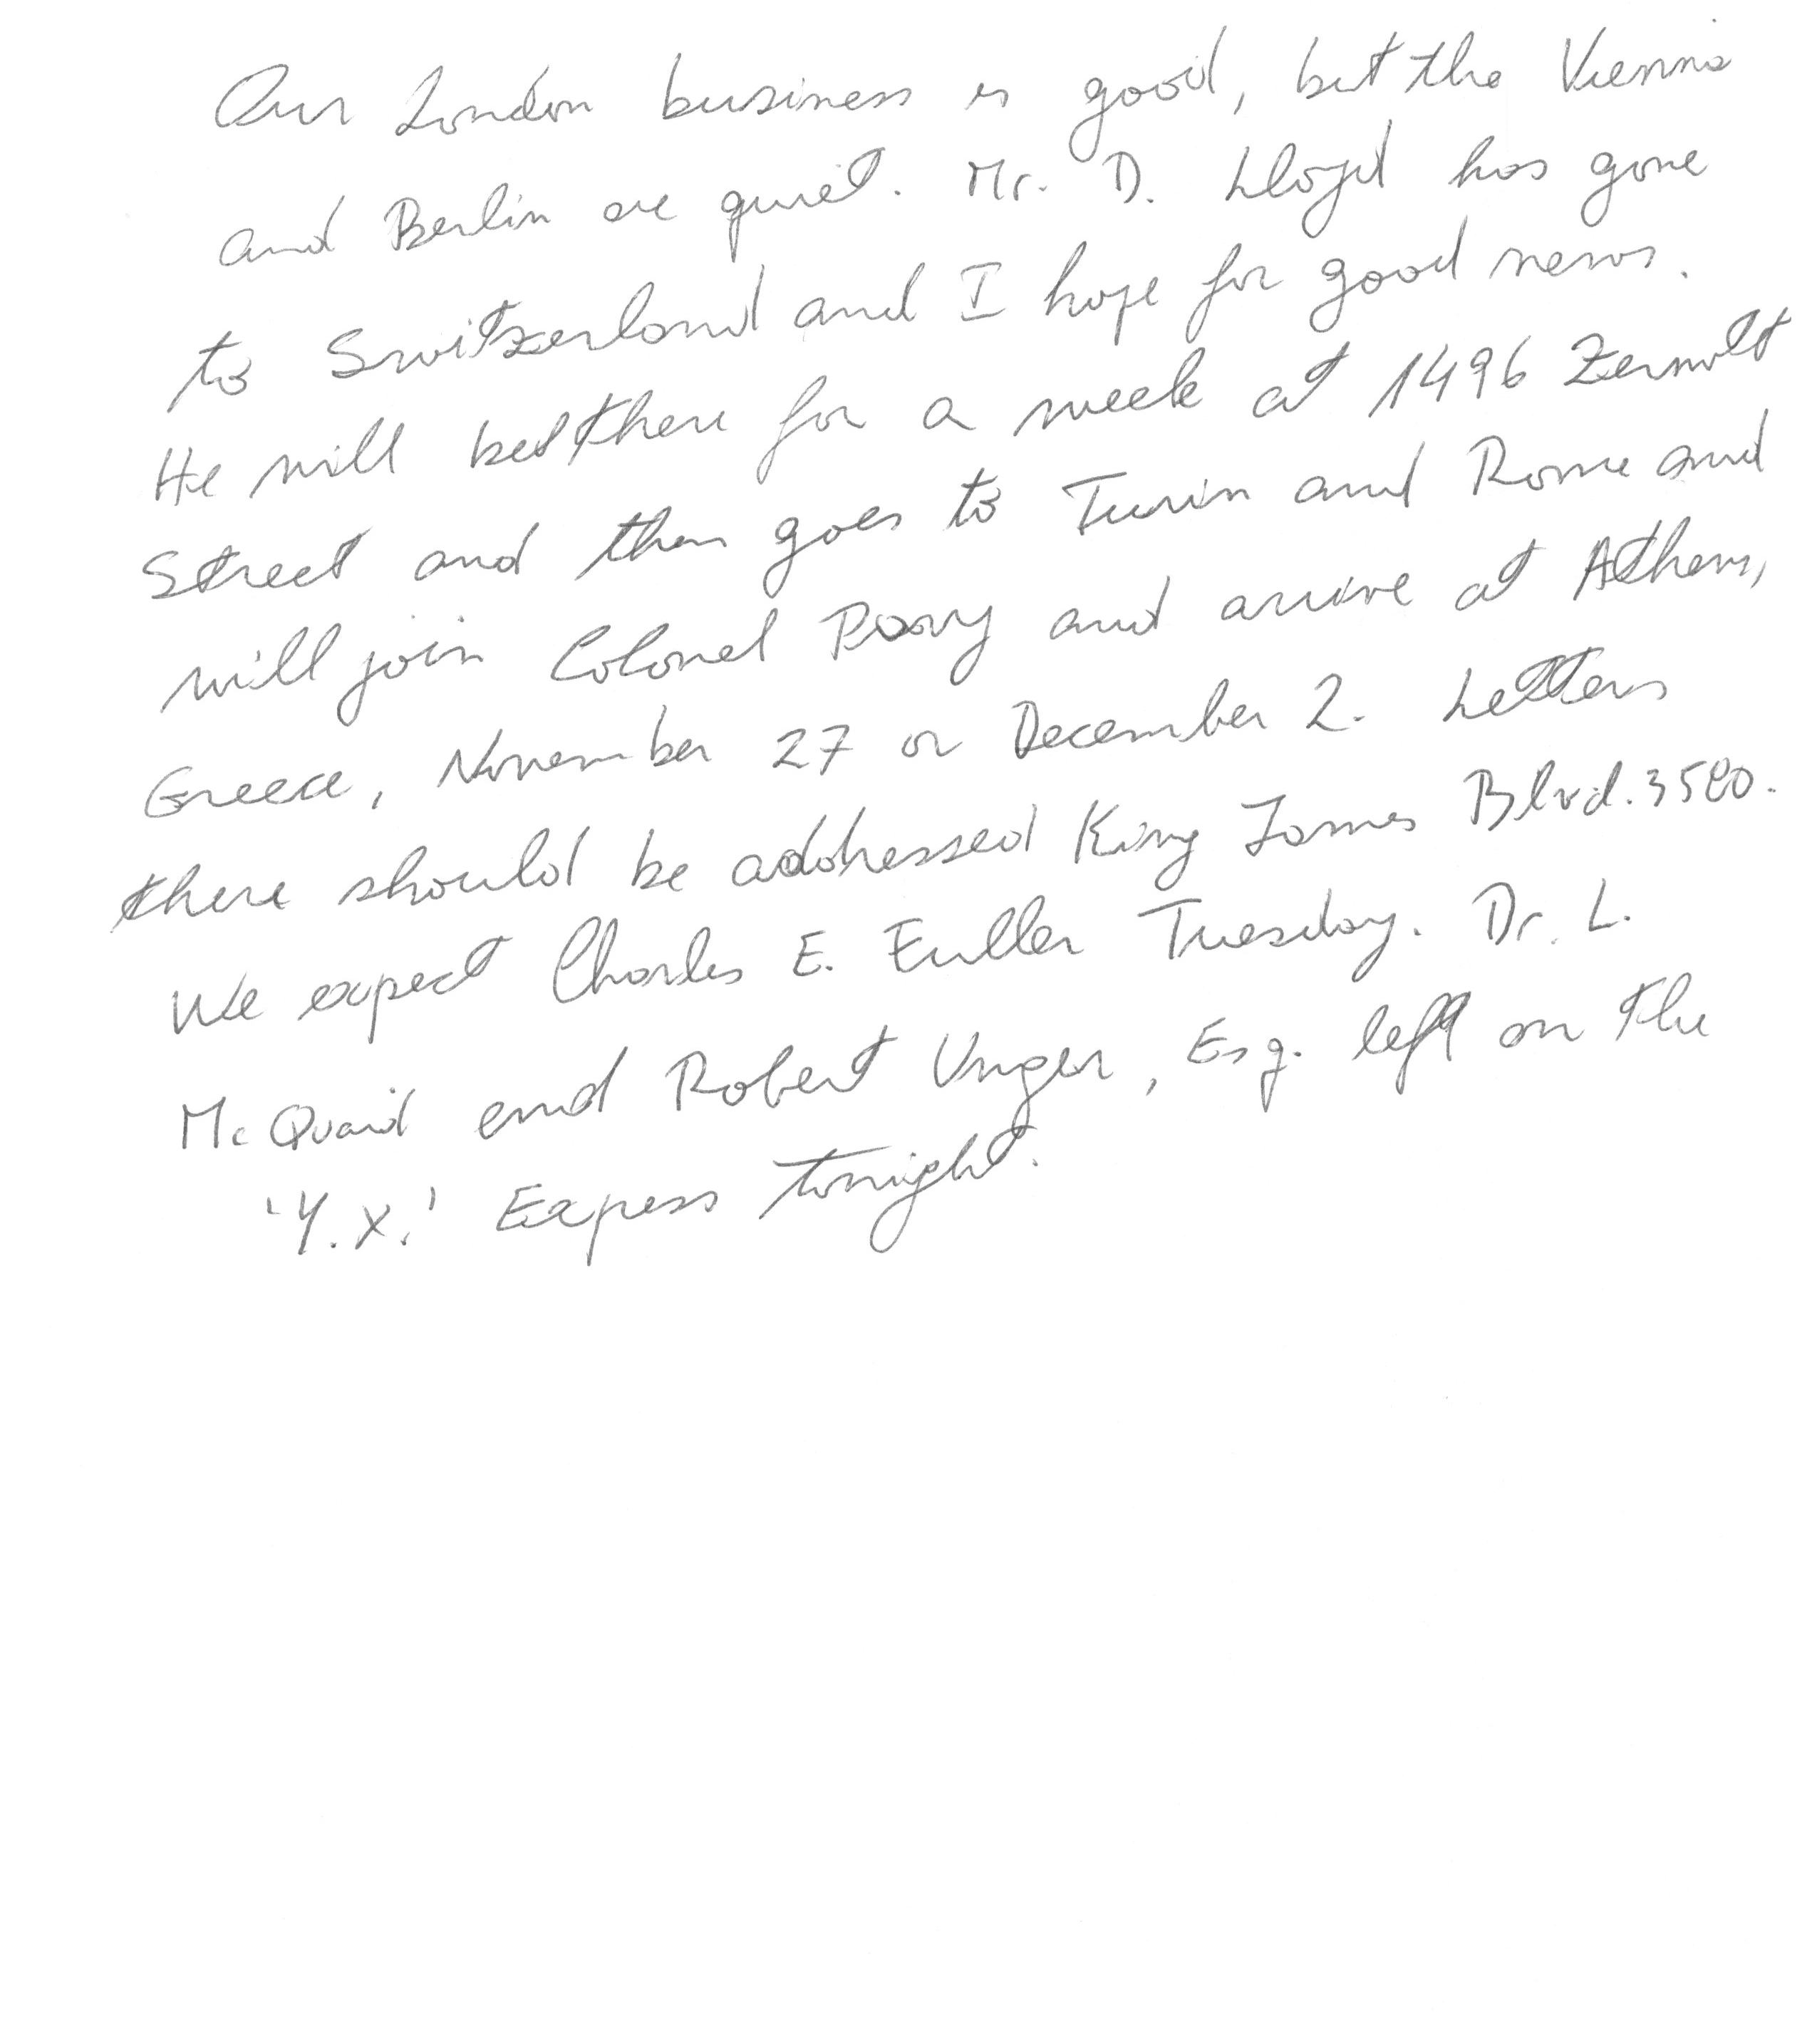 Our London business is good, but the Vienna
and Berlin are quiet. Mr. D. Lloyd has gone
to Switzerland and I hope for good news.
He will be there for a week at 1496 Zermott
Street and then goes to Turin and Rome and
will join Colonel Parry and arrive at Athens,
Greece, November 27 or December 2. Letters
there should be addressed King James Blvd. 3580.
We expect Charles E. Fuller Tuesday. Dr. L.
McQuaid and Robert Unger, Esq. left on the
'Y.X.' Express tonight.